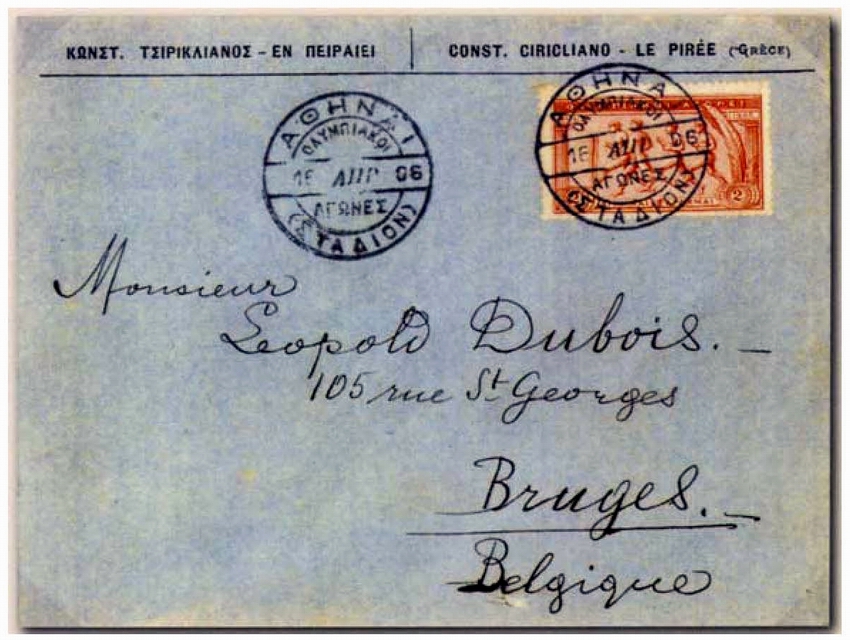 ΚΩΝΣΤ. ΤΣΙΡΙΚΛΙΑΝΟΣ - ΕΝ ΠΕΙΡΑΙΕΙ
CONST. CIRICLIANO - LE PIRÉE (GRÈCE)
ΑΘΗΝΑΙ
ΟΛΥΜΠΙΑΚΟΙ
16 ΑΠΡ 06
ΑΓΩΝΕΣ
(ΣΤΑΔΙΟΝ)
ΑΘΗΝΑΙ
ΟΛΥΜΠΙΑΚΟΙ
16 ΑΠΡ 06
ΑΓΩΝΕΣ
(ΣΤΑΔΙΟΝ)
2
Monsieur
Leopold Dubois. -
105 rue St Georges
Bruges. -
Belgique